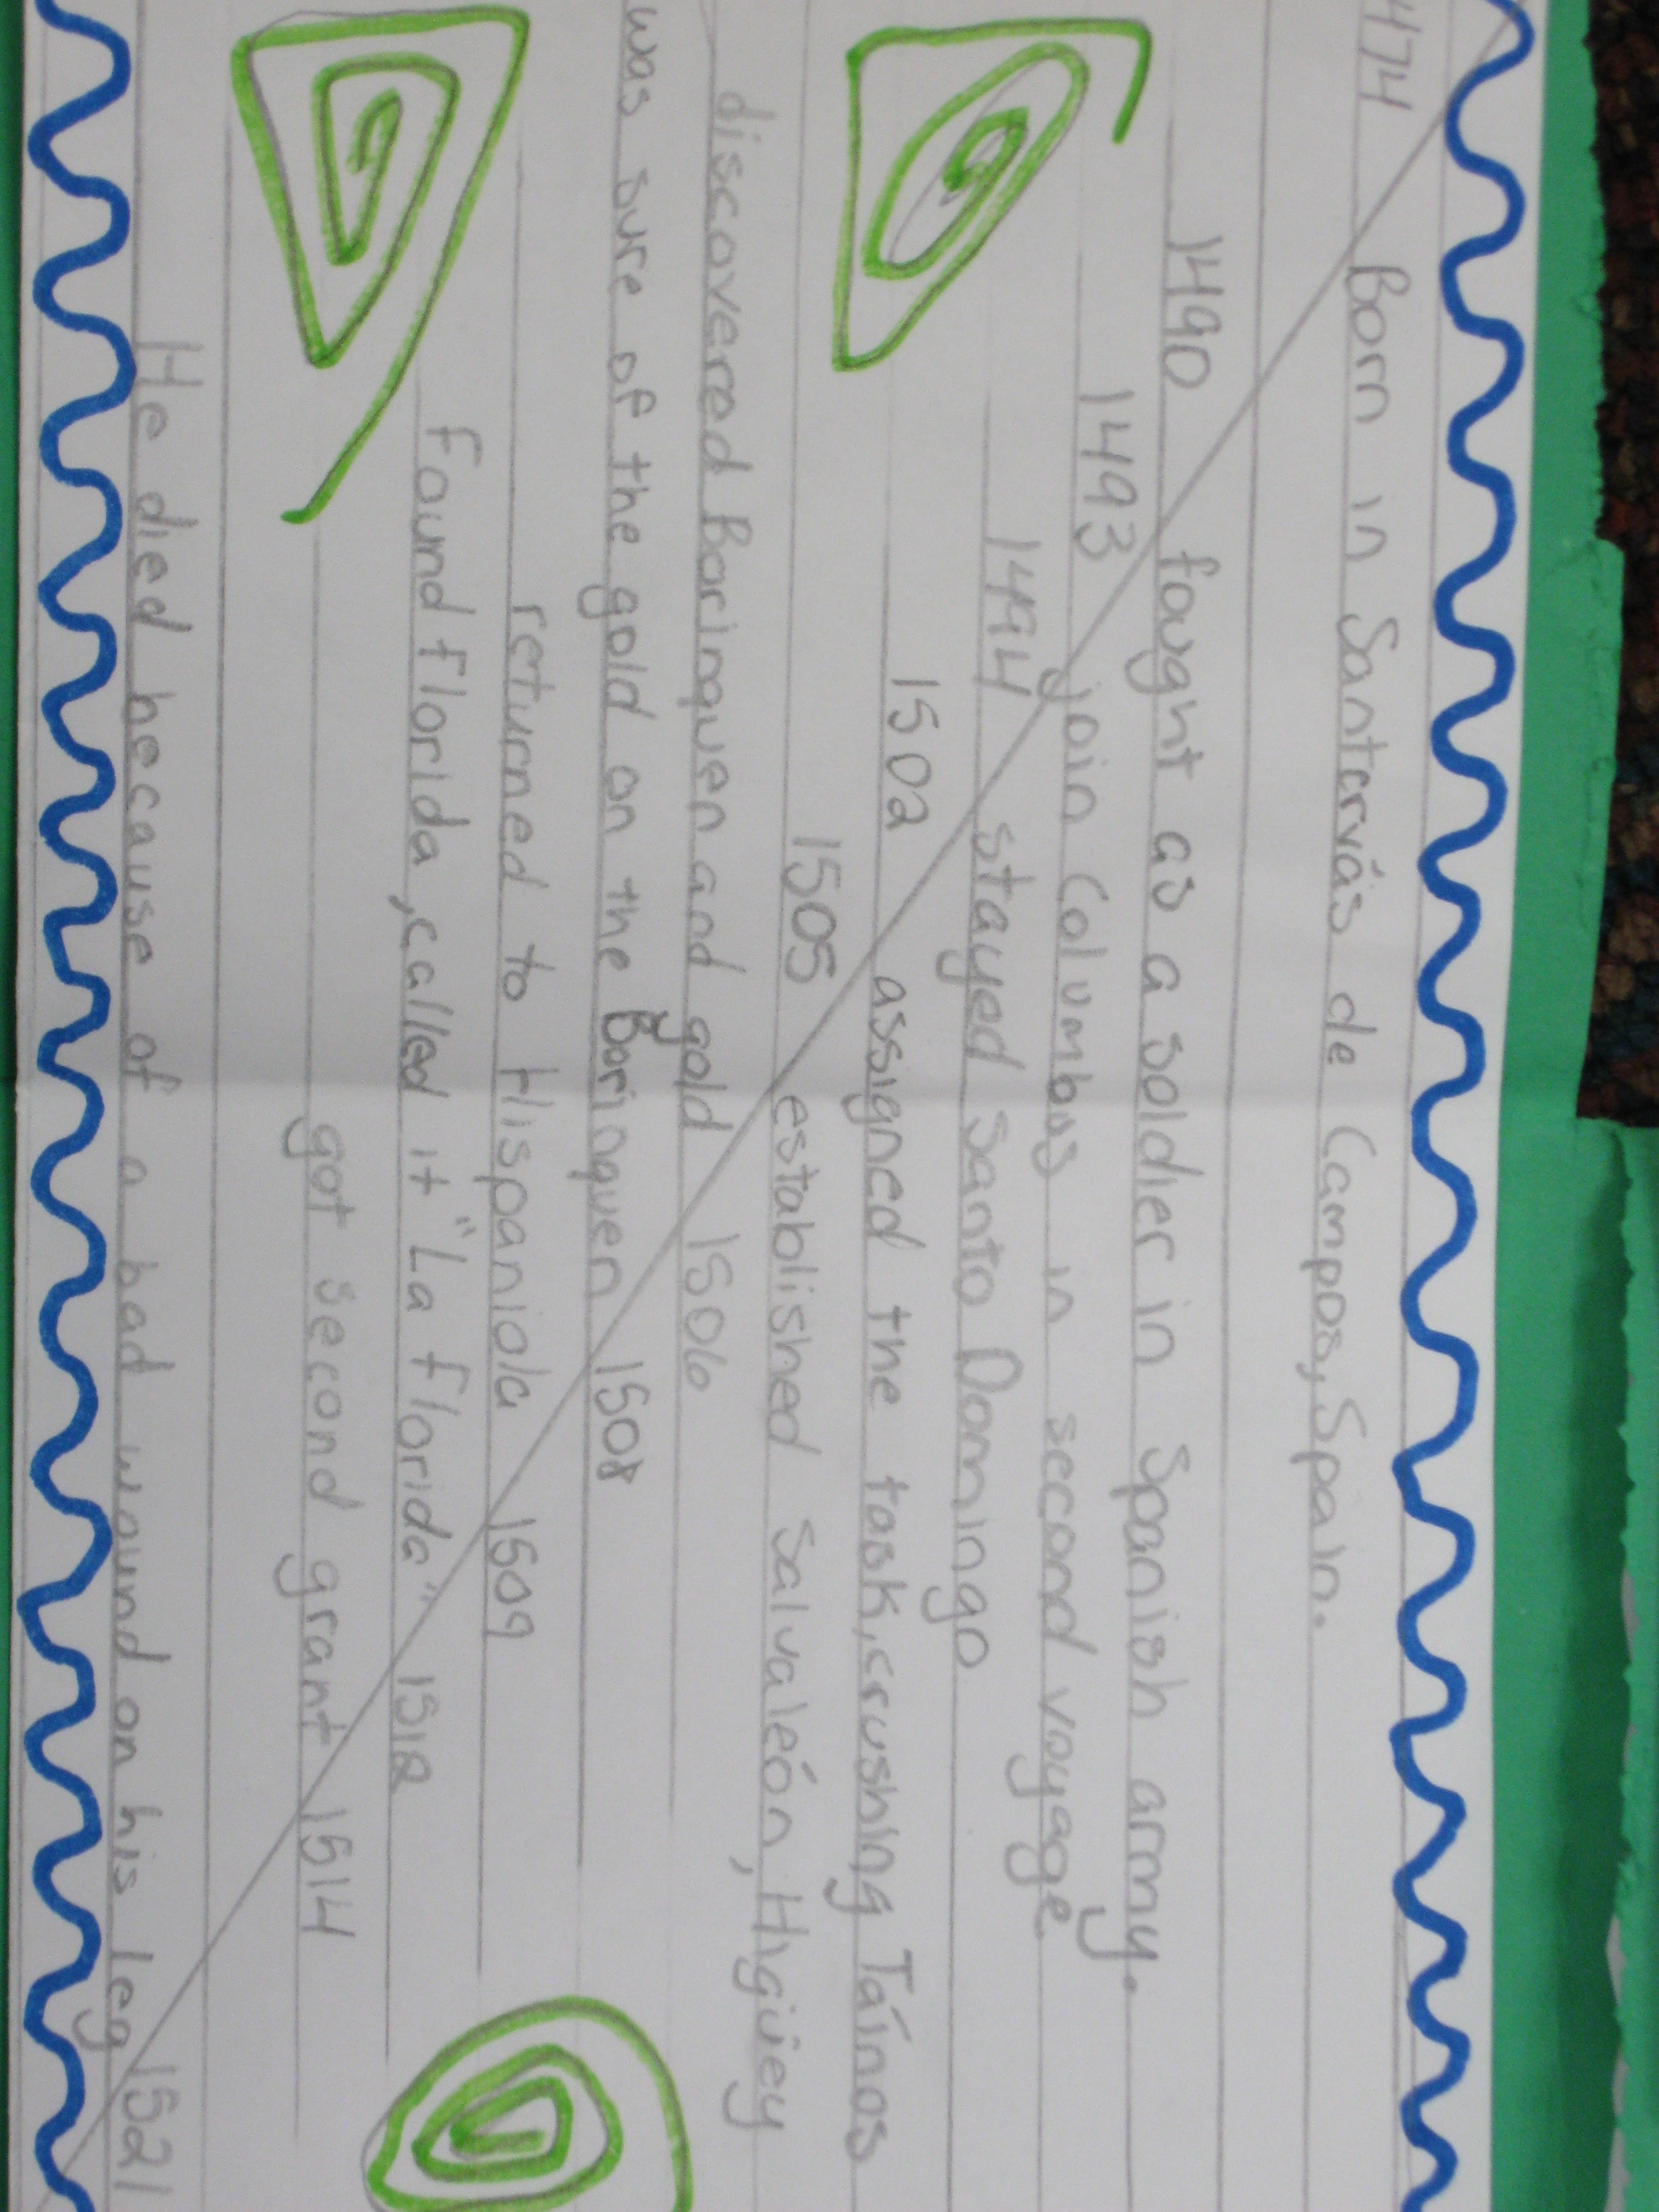 1474 Born in Santervás de Campos, Spain.
1490 fought as a soldier in Spanish army.
1493 join Columbus in second voyage.
1494 stayed Santo Domingo
1502 assigned the task, crushing Taínos
1505 established Salvaleón, Higüey
discovered Borinquen and gold 1506
was sure of the gold on the Borinquen 1508
returned to Hispaniola 1509
Found Florida, called it "La Florida" 1512
got second grant 1514
He died because of a bad wound on his leg 1521